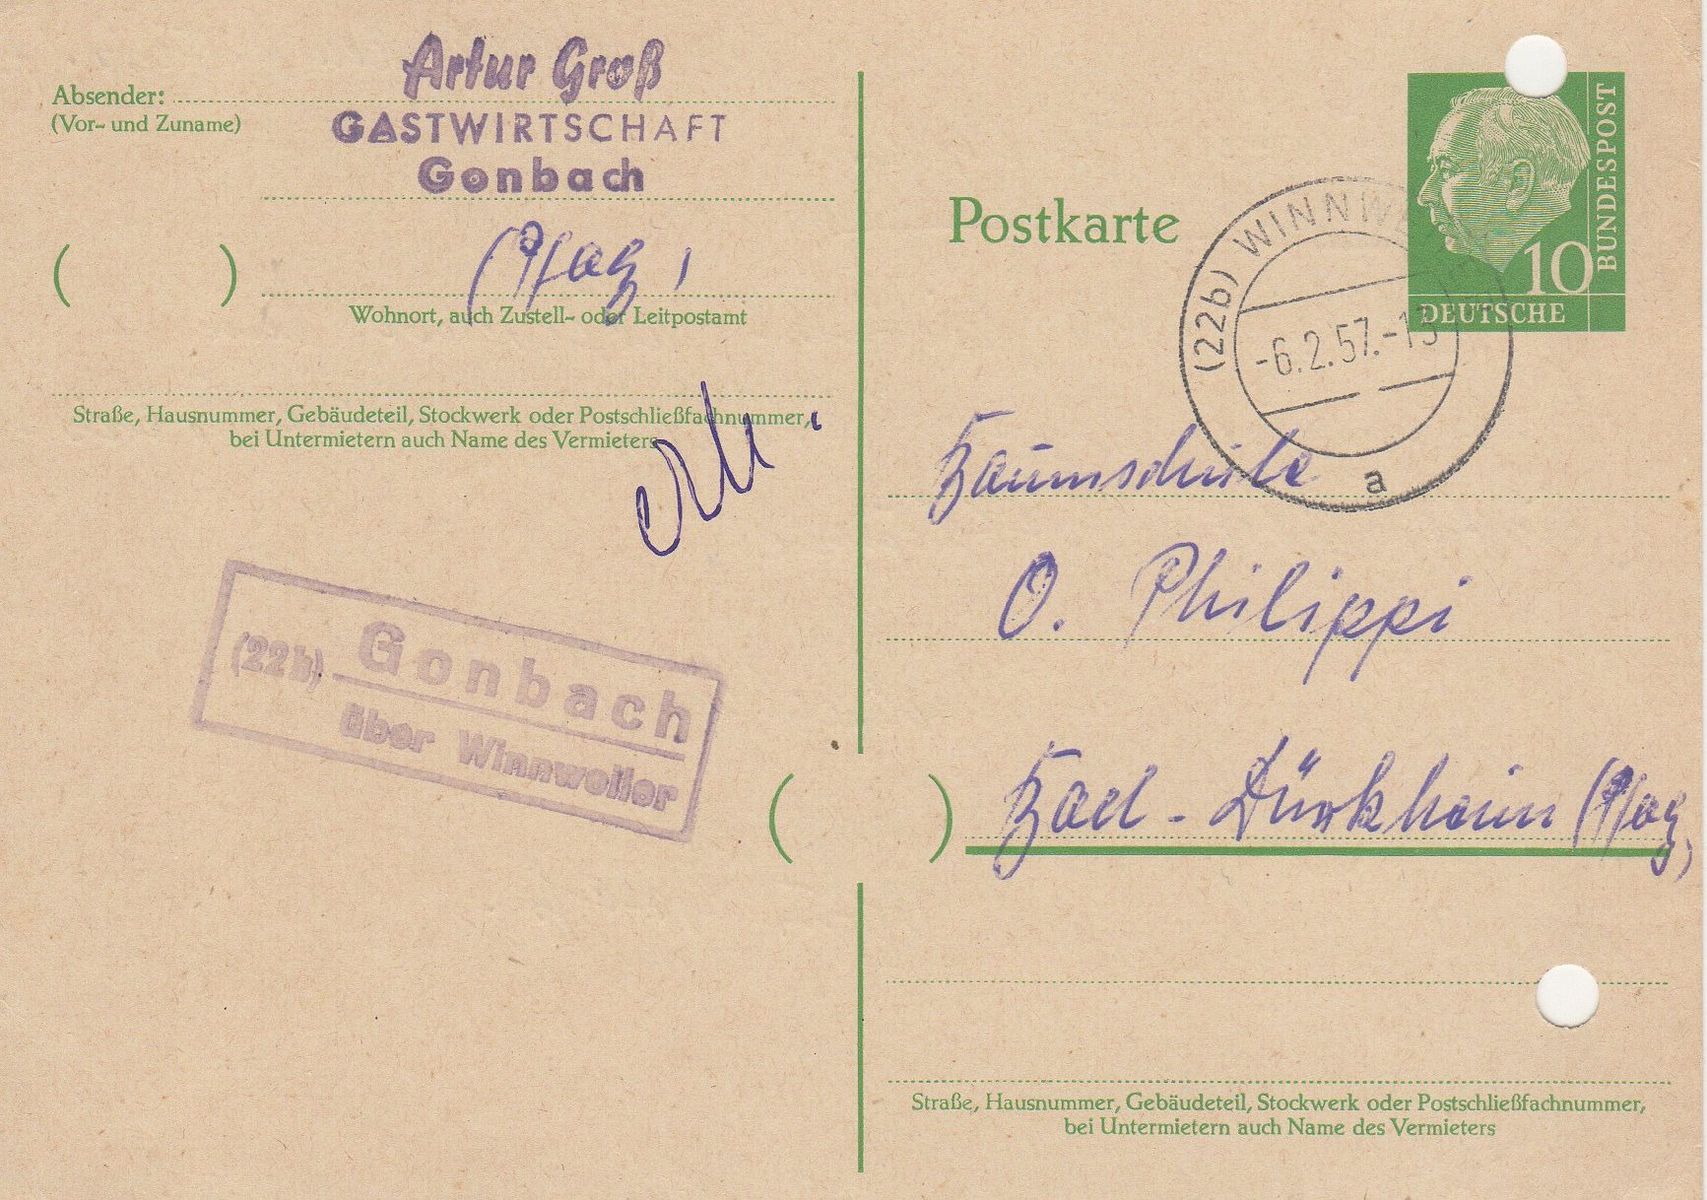 Artur Groß
Absender:
(Vor- und Zuname)
GASTWIRTSCHAFT
Gonbach
(Pfalz)
( )
Wohnort, auch Zustell- oder Leitpostamt
Straße, Hausnummer, Gebäudeteil, Stockwerk oder Postschließfachnummer,
bei Untermietern auch Name des Vermieters
(22b) Gonbach
über Winnweiler
Postkarte
DEUTSCHE
BUNDESPOST
10
(22b) WINNWEILER
-6.2.57.-13
a
Baumschule
O. Philippi
( ) Bad-Dürkheim (Pfalz)
Straße, Hausnummer, Gebäudeteil, Stockwerk oder Postschließfachnummer,
bei Untermietern auch Name des Vermieters